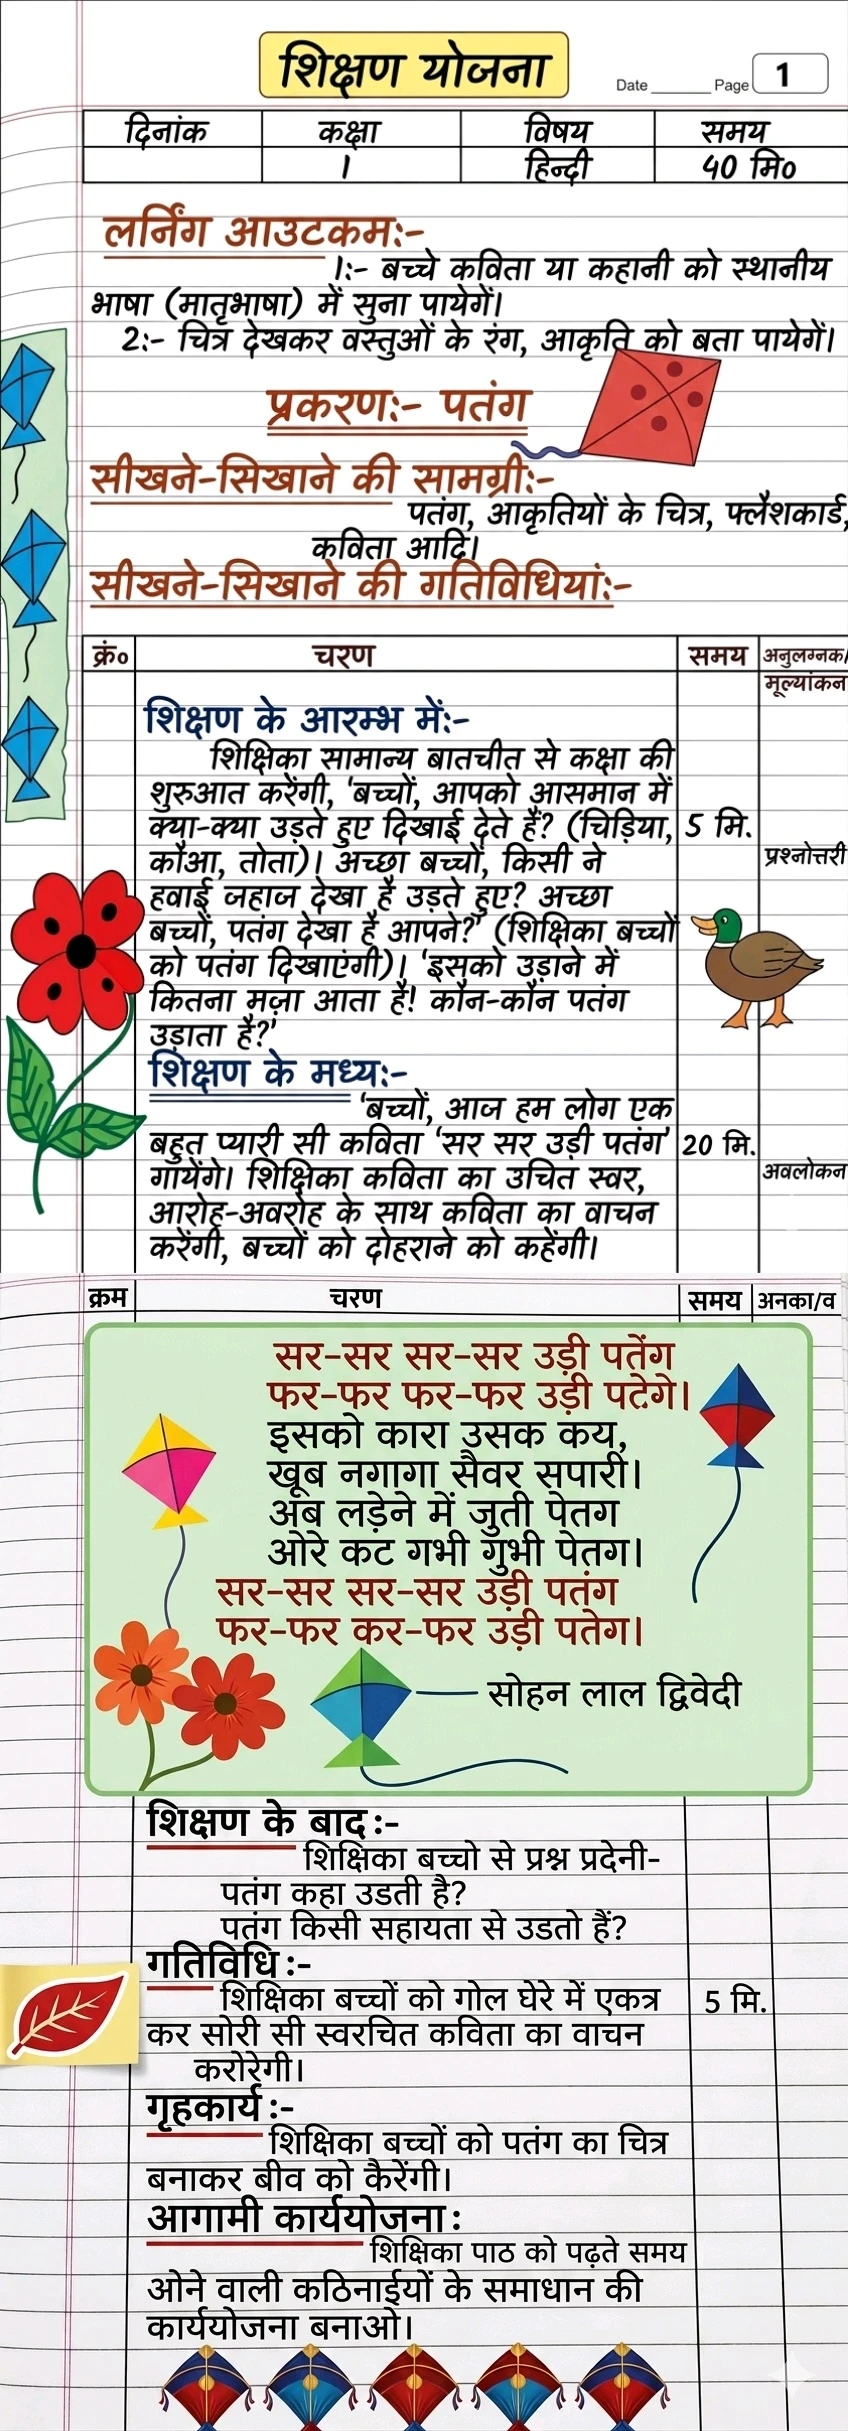 शिक्षण योजना
Date ______ Page 1
दिनांक कक्षा विषय समय
1 हिन्दी 40 मि०
लर्निंग आउटकम:-
1:- बच्चे कविता या कहानी को स्थानीय
भाषा (मातृभाषा) में सुना पायेगें।
2:- चित्र देखकर वस्तुओं के रंग, आकृति को बता पायेगें।
प्रकरण:- पतंग
सीखने-सिखाने की सामग्री:-
पतंग, आकृतियों के चित्र, फ्लैशकार्ड,
कविता आदि।
सीखने-सिखाने की गतिविधियां:-
क्रं० चरण समय अनुलग्नक/
मूल्यांकन
शिक्षण के आरम्भ में:-
शिक्षिका सामान्य बातचीत से कक्षा की
शुरुआत करेंगी, 'बच्चों, आपको आसमान में
क्या-क्या उड़ते हुए दिखाई देते हैं? (चिड़िया, 5 मि.
कौआ, तोता)। अच्छा बच्चों, किसी ने प्रश्नोत्तरी
हवाई जहाज देखा है उड़ते हुए? अच्छा
बच्चों, पतंग देखा है आपने?' (शिक्षिका बच्चों
को पतंग दिखाएंगी)। 'इसको उड़ाने में
कितना मज़ा आता है! कौन-कौन पतंग
उड़ाता है?'
शिक्षण के मध्य:-
'बच्चों, आज हम लोग एक
बहुत प्यारी सी कविता 'सर सर उड़ी पतंग' 20 मि.
गायेंगे। शिक्षिका कविता का उचित स्वर, अवलोकन
आरोह-अवरोह के साथ कविता का वाचन
करेंगी, बच्चों को दोहराने को कहेंगी।
क्रम चरण समय अनका/व
सर-सर सर-सर उड़ी पतेंग
फर-फर फर-फर उड़ी पटेगे।
इसको कारा उसक कय,
खूब नगागा सैवर सपारी।
अब लड़ेने में जुती पेतग
ओरे कट गभी गुभी पेतग।
सर-सर सर-सर उड़ी पतंग
फर-फर कर-फर उड़ी पतेग।
सोहन लाल द्विवेदी
शिक्षण के बाद:-
शिक्षिका बच्चो से प्रश्न प्रदेनी-
पतंग कहा उडती है?
पतंग किसी सहायता से उडतो हैं?
गतिविधि:-
शिक्षिका बच्चों को गोल घेरे में एकत्र 5 मि.
कर सोरी सी स्वरचित कविता का वाचन
करोरेगी।
गृहकार्य:-
शिक्षिका बच्चों को पतंग का चित्र
बनाकर बीव को कैरेंगी।
आगामी कार्ययोजना:
शिक्षिका पाठ को पढ़ते समय
ओने वाली कठिनाईयों के समाधान की
कार्ययोजना बनाओ।